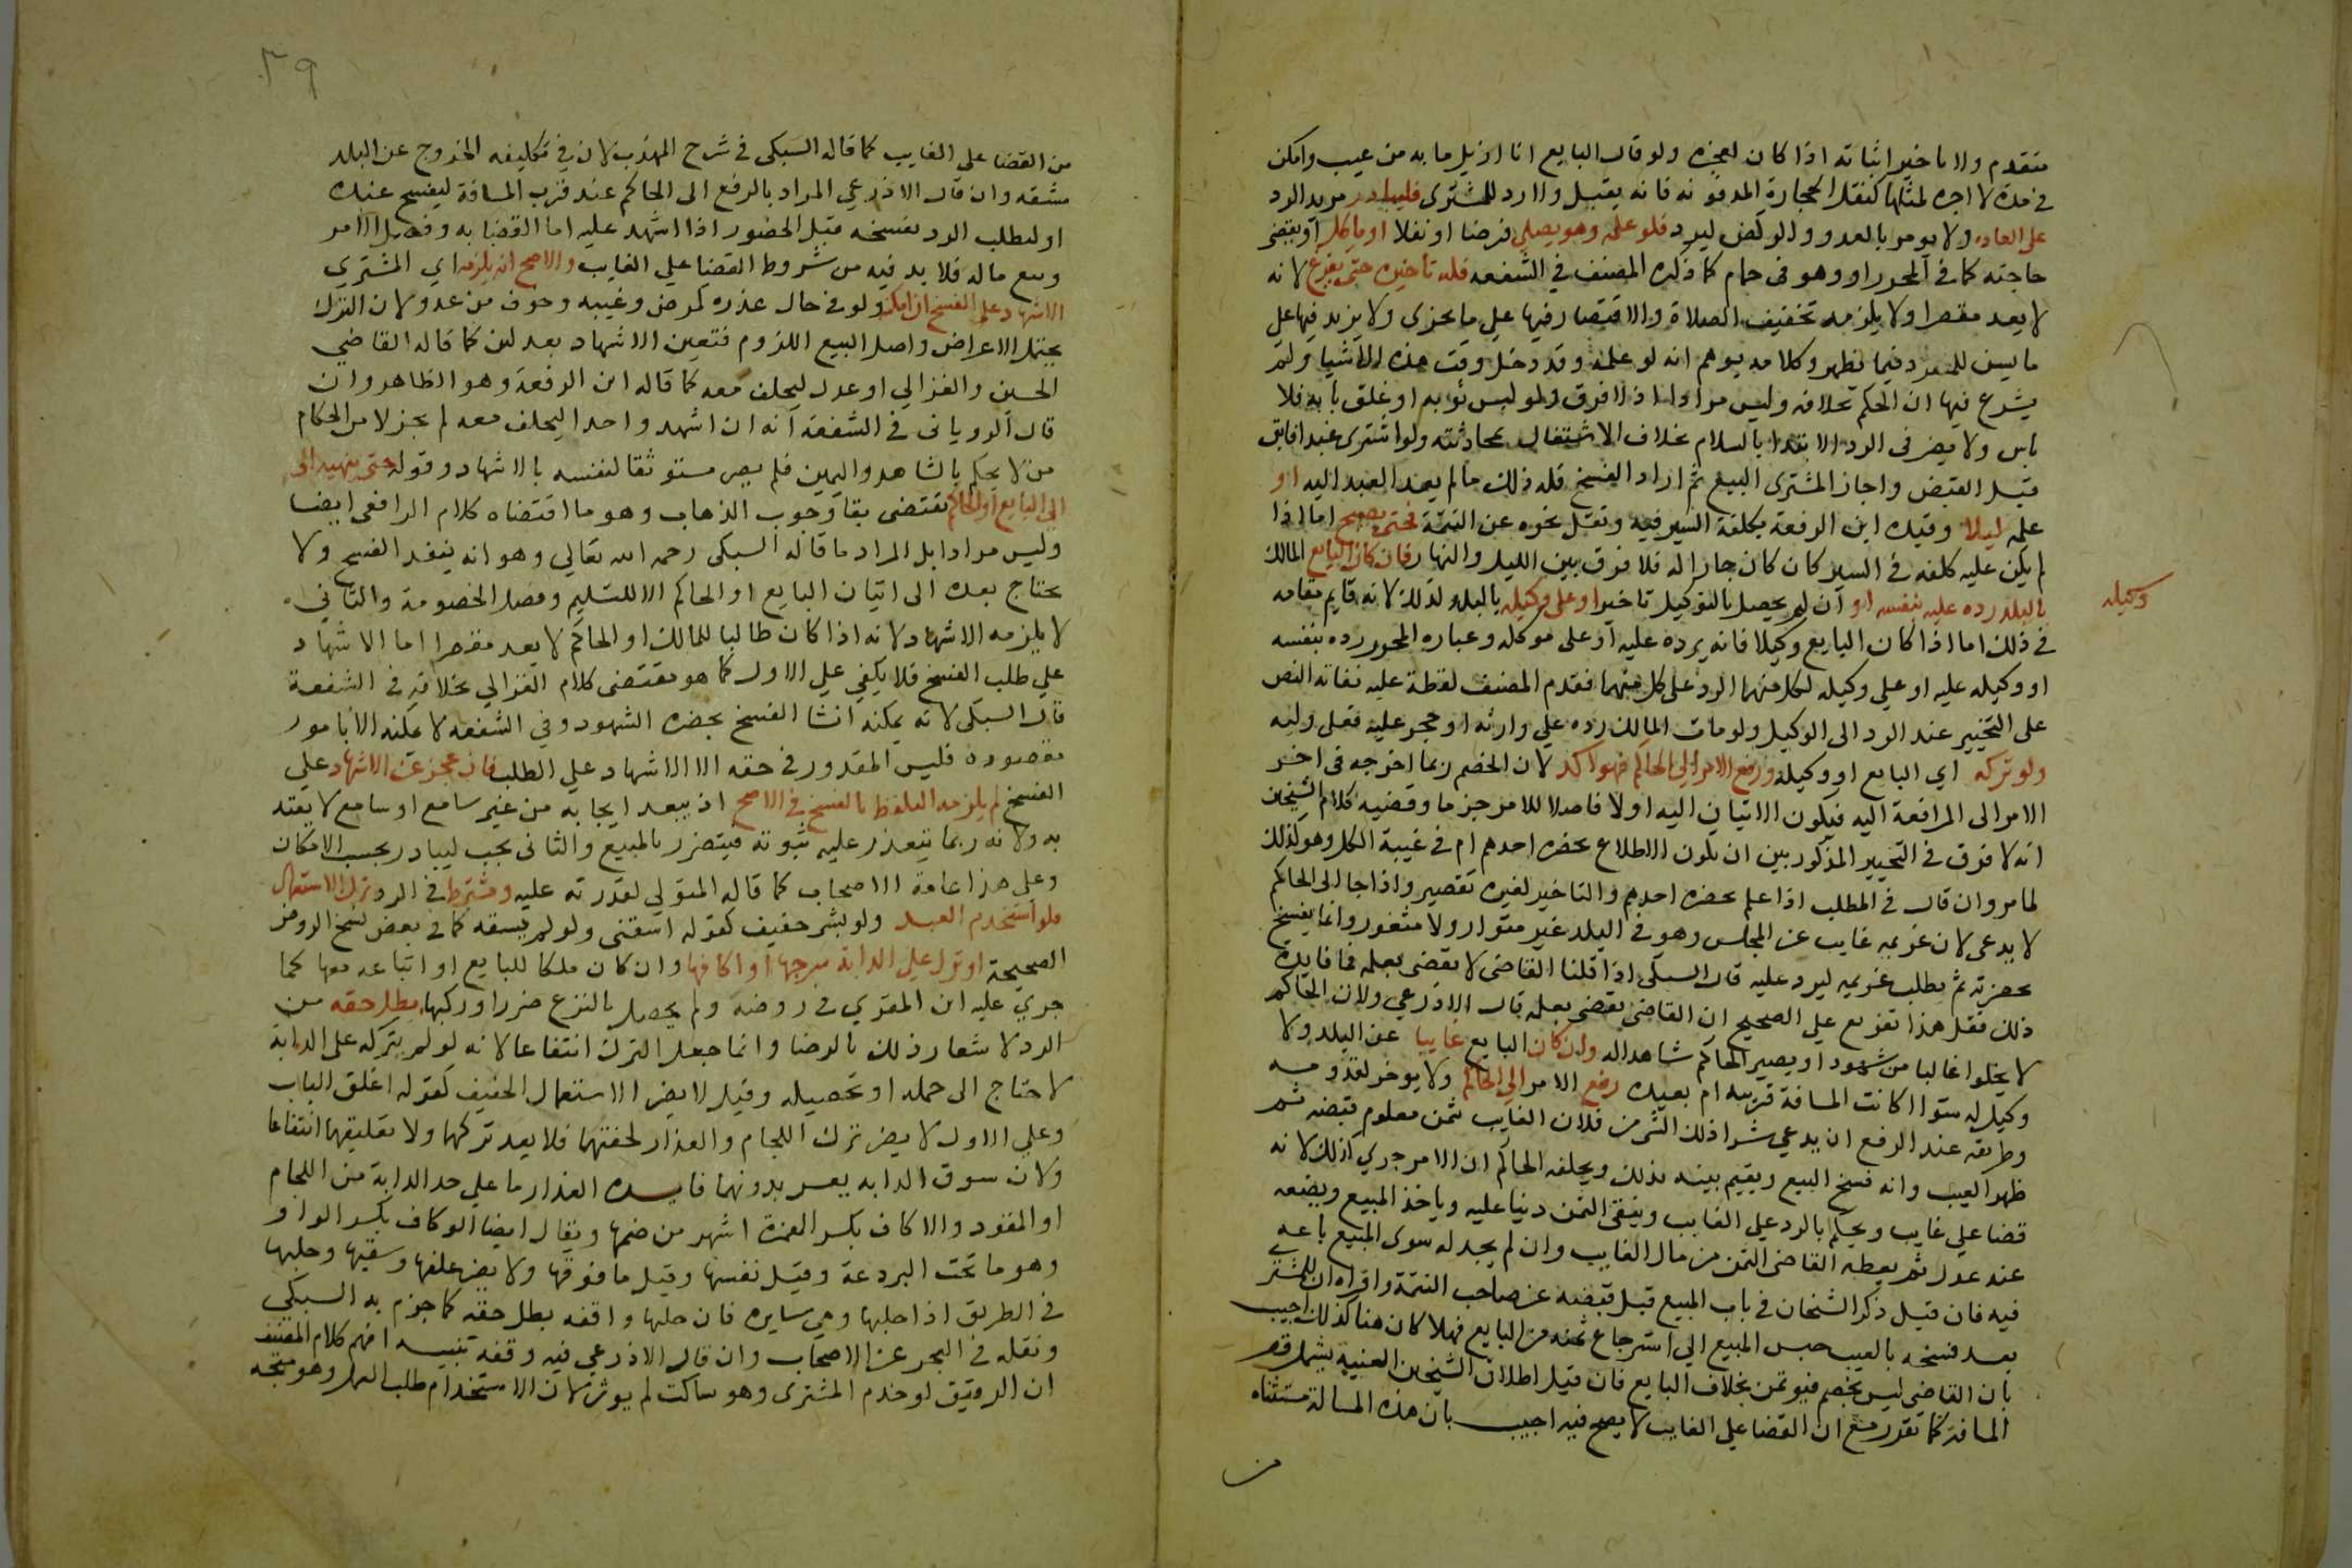 متقدم والا ياخير اثباته اذا كان لعجزه ولو قال البايع انا ازيل ما به من عيب وامكن
في مدة لا اجرة لمثلها كنقل الحجارة المدفونه فانه يقبل ولا رد للمشترى فليبادر مريد الرد
على العاده ولا يومر بالعدو والركض ليرد فلو علمه وهو يصلي فرضا او نفلا او ياكل او يقضى
حاجته كما في المحرر او وهو فى حمام كما ذكره المصنف في الشفعه فله تاخيره حتى يفرغ لانه
لا يعد مقصرا ولا يلزمه تخفيف الصلاة والاقتصار فيها على ما يجزى ولا يزيد فيها على
ما يسن للمنفرد فيما يظهر وكلامه يوهم انه لو علمه وقد دخل وقت هذه الاشيا ولم
يشرع فيها ان الحكم بخلافه وليس مرادا اذ لا فرق ولو لبس ثوبه او غلق بابه فلا
باس ولا يضر فى الرد الابتدا بالسلام بخلاف الاشتغال بمحادثته ولو اشترى عبدا فابق
قبل القبض واجاز المشترى البيع ثم اراد الفسخ فله ذلك ما لم يعد العبد اليه او
علمه ليلا وقيده ابن الرفعة بكلفة السير فيه ونقل نحوه عن التتمة فحتى يصبح اما اذا
لم يكن عليه كلفه في السير كان كان جارا له فلا فرق بين الليل والنهار فان كان البايع المالك
بالبلد رده عليه بنفسه او ان لم يحصل بالتوكيل تاخير او على وكيله بالبلد لذلك لانه قايم مقامه
وكيله
في ذلك اما اذا كان البايع وكيلا فانه يرده عليه او على موكله وعباره المحرر رده بنفسه
او وكيله عليه او على وكيله لكل منهما الرد على كل منهما فقدم المصنف لفظة عليه نفاته النص
على التخيير عند الرد الى الوكيل ولو مات المالك رده على وارثه او حجر عليه فعلى وليه
ولو تركه اي البايع او وكيله ورفع الامر الى الحاكم فهو آكد لان الخصم ربما اخرجه فى اخر
الامر الى المرافعة اليه فيكون الاتيان اليه اولا فاصلا للامر جزما وقضيه كلام الشيخان
انه لا فرق في التخيير المذكور بين ان يكون الاطلاع بحضره احدهم ام في غيبة الكل وهو لذلك
لما مر وان قال في المطلب اذا علم بحضره احدهم والتاخير لغيره تقصير واذا جا الى الحاكم
لا يدعى لان غريمه غايب عن المجلس وهو في البلد غير متوار ولا متعذر وانما يفسخ
بحضرته ثم يطلب غريمه ليرد عليه قال السبكى اذا قلنا القاضى لا يقضى بعلمه فما فايدة
ذلك فقل هذا تفريع على الصحيح ان القاضى يقضى بعلمه قال الاذرعي ولان الحاكم
لا يخلوا غالبا من شهود او يصير الحاكم شاهدا له وان كان البايع غايبا عن البلد ولا
وكيل له سوا اكانت المسافة قريبه ام بعيده رفع الامر الى الحاكم ولا يوخر لقدومه
وطريقه عند الرفع ان يدعي شرا ذلك الشى من فلان الغايب بثمن معلوم قبضه ثم
ظهر العيب وانه فسخ البيع ويقيم بينه بذلك ويحلفه الحاكم ان الامر جرى كذلك لانه
قضا على غايب ويحكم بالرد على الغايب ويبقى الثمن دينا عليه وياخذ المبيع ويضعه
عند عدل ثم يعطه القاضى الثمن من مال الغايب وان لم يجد له سوى المبيع باعه
فيه فان قيل ذكر الشيخان في باب المبيع قبل قبضه عن صاحب التتمة واقراه ان للمشترى
بعد فسخه بالعيب حبس المبيع الى استرجاع ثمنه من البايع فهلا كان هنا كذلك اجيب
بان القاضى ليس بخصم فيوتمن بخلاف البايع فان قيل اطلاق الشيخين الغيبة يشمل قصر
المسافة كما تقرر مع ان القضا على الغايب لا يصح فيه اجيب بان هذه المسالة مستثناه
من
٣٩
من القضا على الغايب كما قاله السبكى في شرح المهذب لان في تكليفه الخروج عن البلد
مشقه وان قال الاذرعي المراد بالرفع الى الحاكم عند قرب المسافة ليفسخ عنده
او ليطلب الرد بفسخه قبل الحضور اذا اشهد عليه اما القضا به وفصل الامر
وبيع ماله فلا بد فيه من شروط القضا على الغايب والاصح انه يلزمه اي المشتري
الاشهاد على الفسخ ان امكنه ولو في حال عذره كمرض وغيبه وخوف من عدو لان الترك
يحتمل الاعراض واصل البيع اللزوم فتعين الاشهاد بعدلين كما قاله القاضي
الحسين والغزالي او عدل ليحلف معه كما قاله ابن الرفعة وهو الظاهر وان
قال الرويانى في الشفعة انه ان اشهد واحدا ليحلف معه لم يجز لا من الحكام
من لا يحكم بالشاهد واليمين فلم يصر مستوثقا لنفسه بالاشهاد وقوله حتى ينهيه الى
الى البايع او الحاكم يقتضى بقا وجوب الذهاب وهو ما اقتضاه كلام الرافعى ايضا
وليس مرادا بل المراد ما قاله السبكى رحمه الله تعالى وهو انه ينفذ الفسخ ولا
يحتاج بعده الى اتيان البايع او الحاكم الا للتسليم وفصل الخصومة والثاني
لا يلزمه الاشهاد لانه اذا كان طالبا للمالك او الحاكم لا يعد مقصرا اما الاشهاد
على طلب الفسخ فلا يكفي على الاول كما هو مقتضى كلام الغزالي بخلافه في الشفعة
قال السبكى لانه يمكنه انشا الفسخ بحضره الشهود وفي الشفعه لا يمكنه الا بامور
مقصودة فليس المقدور في حقه الا الاشهاد على الطلب فان عجز عن الاشهاد على
الفسخ لم يلزمه التلفظ بالفسخ في الاصح اذ يبعد ايجابه من غير سامع او سامع لا يعتد
به ولانه ربما يتعذر عليه ثبوته فيتضرر بالمبيع والثانى يجب ليبادر بحسب الامكان
وعلى هذا عامة الاصحاب كما قاله المتولي لقدرته عليه ويشترط في الرد ترك الاستعمال
فلو استخدم العبد ولو بشى خفيف كقوله اسقنى ولو لم يسقه كما في بعض نسخ الروض
الصحيحة او ترك على الدابة سرجها او اكافها وان كان ملكا للبايع او اتباعه معها كما
جري عليه ابن المقري في روضه ولم يحصل بالنزع ضرر او ركبها بطل حقه من
الرد لاشعار ذلك بالرضا وانما جعل الترك انتفاعا لانه لو لم يتركه على الدابة
لاحتاج الى حمله او تحصيله وقيل لا يضر الاستعمال الخفيف كقوله اغلق الباب
وعلى الاول لا يضر ترك اللجام والعذار لخفتهما فلا يعد تركهما ولا تعليقهما انتفاعا
ولان سوق الدابه يعسر بدونهما فايده العذار ما على حد الدابة من اللجام
او المقود والاكاف بكسر الهمزة اشهر من ضمها ويقال ايضا الوكاف بكسر الواو
وهو ما تحت البردعة وقيل نفسها وقيل ما فوقها ولا يضر علفها وسقيها وحلبها
في الطريق اذا حلبها وهي سايره فان حلبها واقفه بطل حقه كما جزم به السبكي
ونقله في البحر عن الاصحاب وان قال الاذرعي فيه وقفه تنبيه افهم كلام المصنف
ان الرقيق لو خدم المشترى وهو ساكت لم يوثر لان الاستخدام طلب العمل وهو متجه